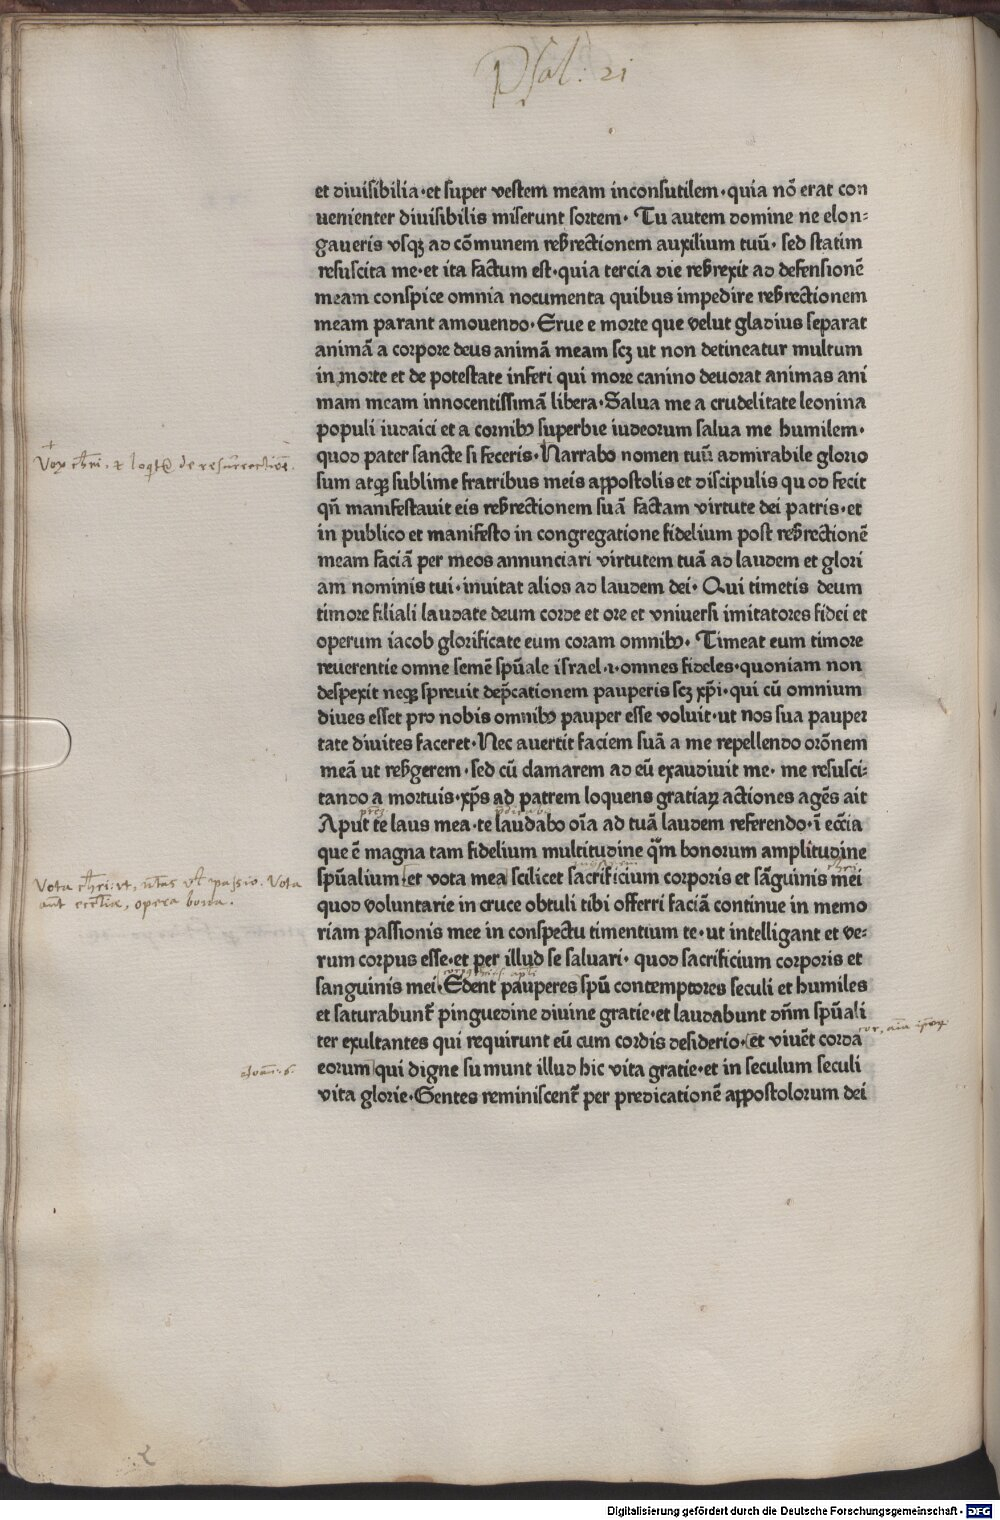 Psal: 21
et diuisibilia·et super vestem meam inconsutilem·quia nõ erat con
uenienter diuisibilis miserunt sortem· Tu autem domine ne elon-
gaueris vsqꝫ ad cõmunem resr̃rectionem auxilium tuũ· sed statim
resuscita me·et ita factum est·quia tercia die resr̃rexit ad defensionẽ
meam conspice omnia nocumenta quibus impedire resr̃rectionem
meam parant amouendo·Erue e morte que velut gladius separat
animã a corpore deus animã meam scꝫ ut non detineatur multum
in morte et de potestate inferi qui more canino deuorat animas ani
mam meam innocentissimã libera·Salua me a crudelitate leonina
populi iudaici et a cornibꝰ superbie iudeorum salua me humilem·
Vox chr̃i. et loqt̃ de resurrectiõe.
quod pater sancte si feceris·Narrabo nomen tuũ admirabile glorio
sum atqꝫ sublime fratribus meis appostolis et discipulis quod fecit
qñ manifestauit eis resr̃rectionem suã factam virtute dei patris·et
in publico et manifesto in congregatione fidelium post resr̃rectionẽ
meam faciã per meos annunciari virtutem tuã ad laudem et glori
am nominis tui·inuitat alios ad laudem dei· Qui timetis deum
timore filiali laudate deum corde et ore et vniuersi imitatores fidei et
operum iacob glorificate eum coram omnibꝰ· Timeat eum timore
reuerentie omne semẽ spũale israel·i·omnes fideles·quoniam non
despexit neqꝫ spreuit dep̃cationem pauperis scꝫ xp̃i·qui cũ omnium
diues esset pro nobis omnibꝰ pauper esse voluit·ut nos sua pauper
tate diuites faceret·Nec auertit faciem suã a me repellendo orõnem
meã ut resr̃gerem·sed cũ clamarem ad eũ exaudiuit me· me resusci-
tando a mortuis·xp̃s ad patrem loquens gratiaꝝ actiones agẽs ait
Aput te laus mea·te laudabo oĩa ad tuã laudem referendo·ĩ ecc̃ia
que ẽ magna tam fidelium multitudine q̃m bonorum amplitudine
Vota chr̃i: ut, passio. Vota
aut eccl̃iæ, opera bona.
spũalium·et vota mea scilicet sacrificium corporis et sãguinis mei
quod voluntarie in cruce obtuli tibi offerri faciã continue in memo
riam passionis mee in conspectu timentium te·ut intelligant et ve-
rum corpus esse·et per illud se saluari· quod sacrificium corporis et
sanguinis mei·Edent pauperes spũ contemptores seculi et humiles
et saturabunt̃ pinguedine diuine gratie·et laudabunt dñm spũali
ter exultantes qui requirunt eũ cum cordis desiderio·et viuẽt corda
Joan̄. 6.
eorum qui digne sumunt illud hic vita gratie·et in seculum seculi
vita glorie·Gentes reminiscent̃ per predicationẽ appostolorum dei
Digitalisierung gefördert durch die Deutsche Forschungsgemeinschaft - DFG